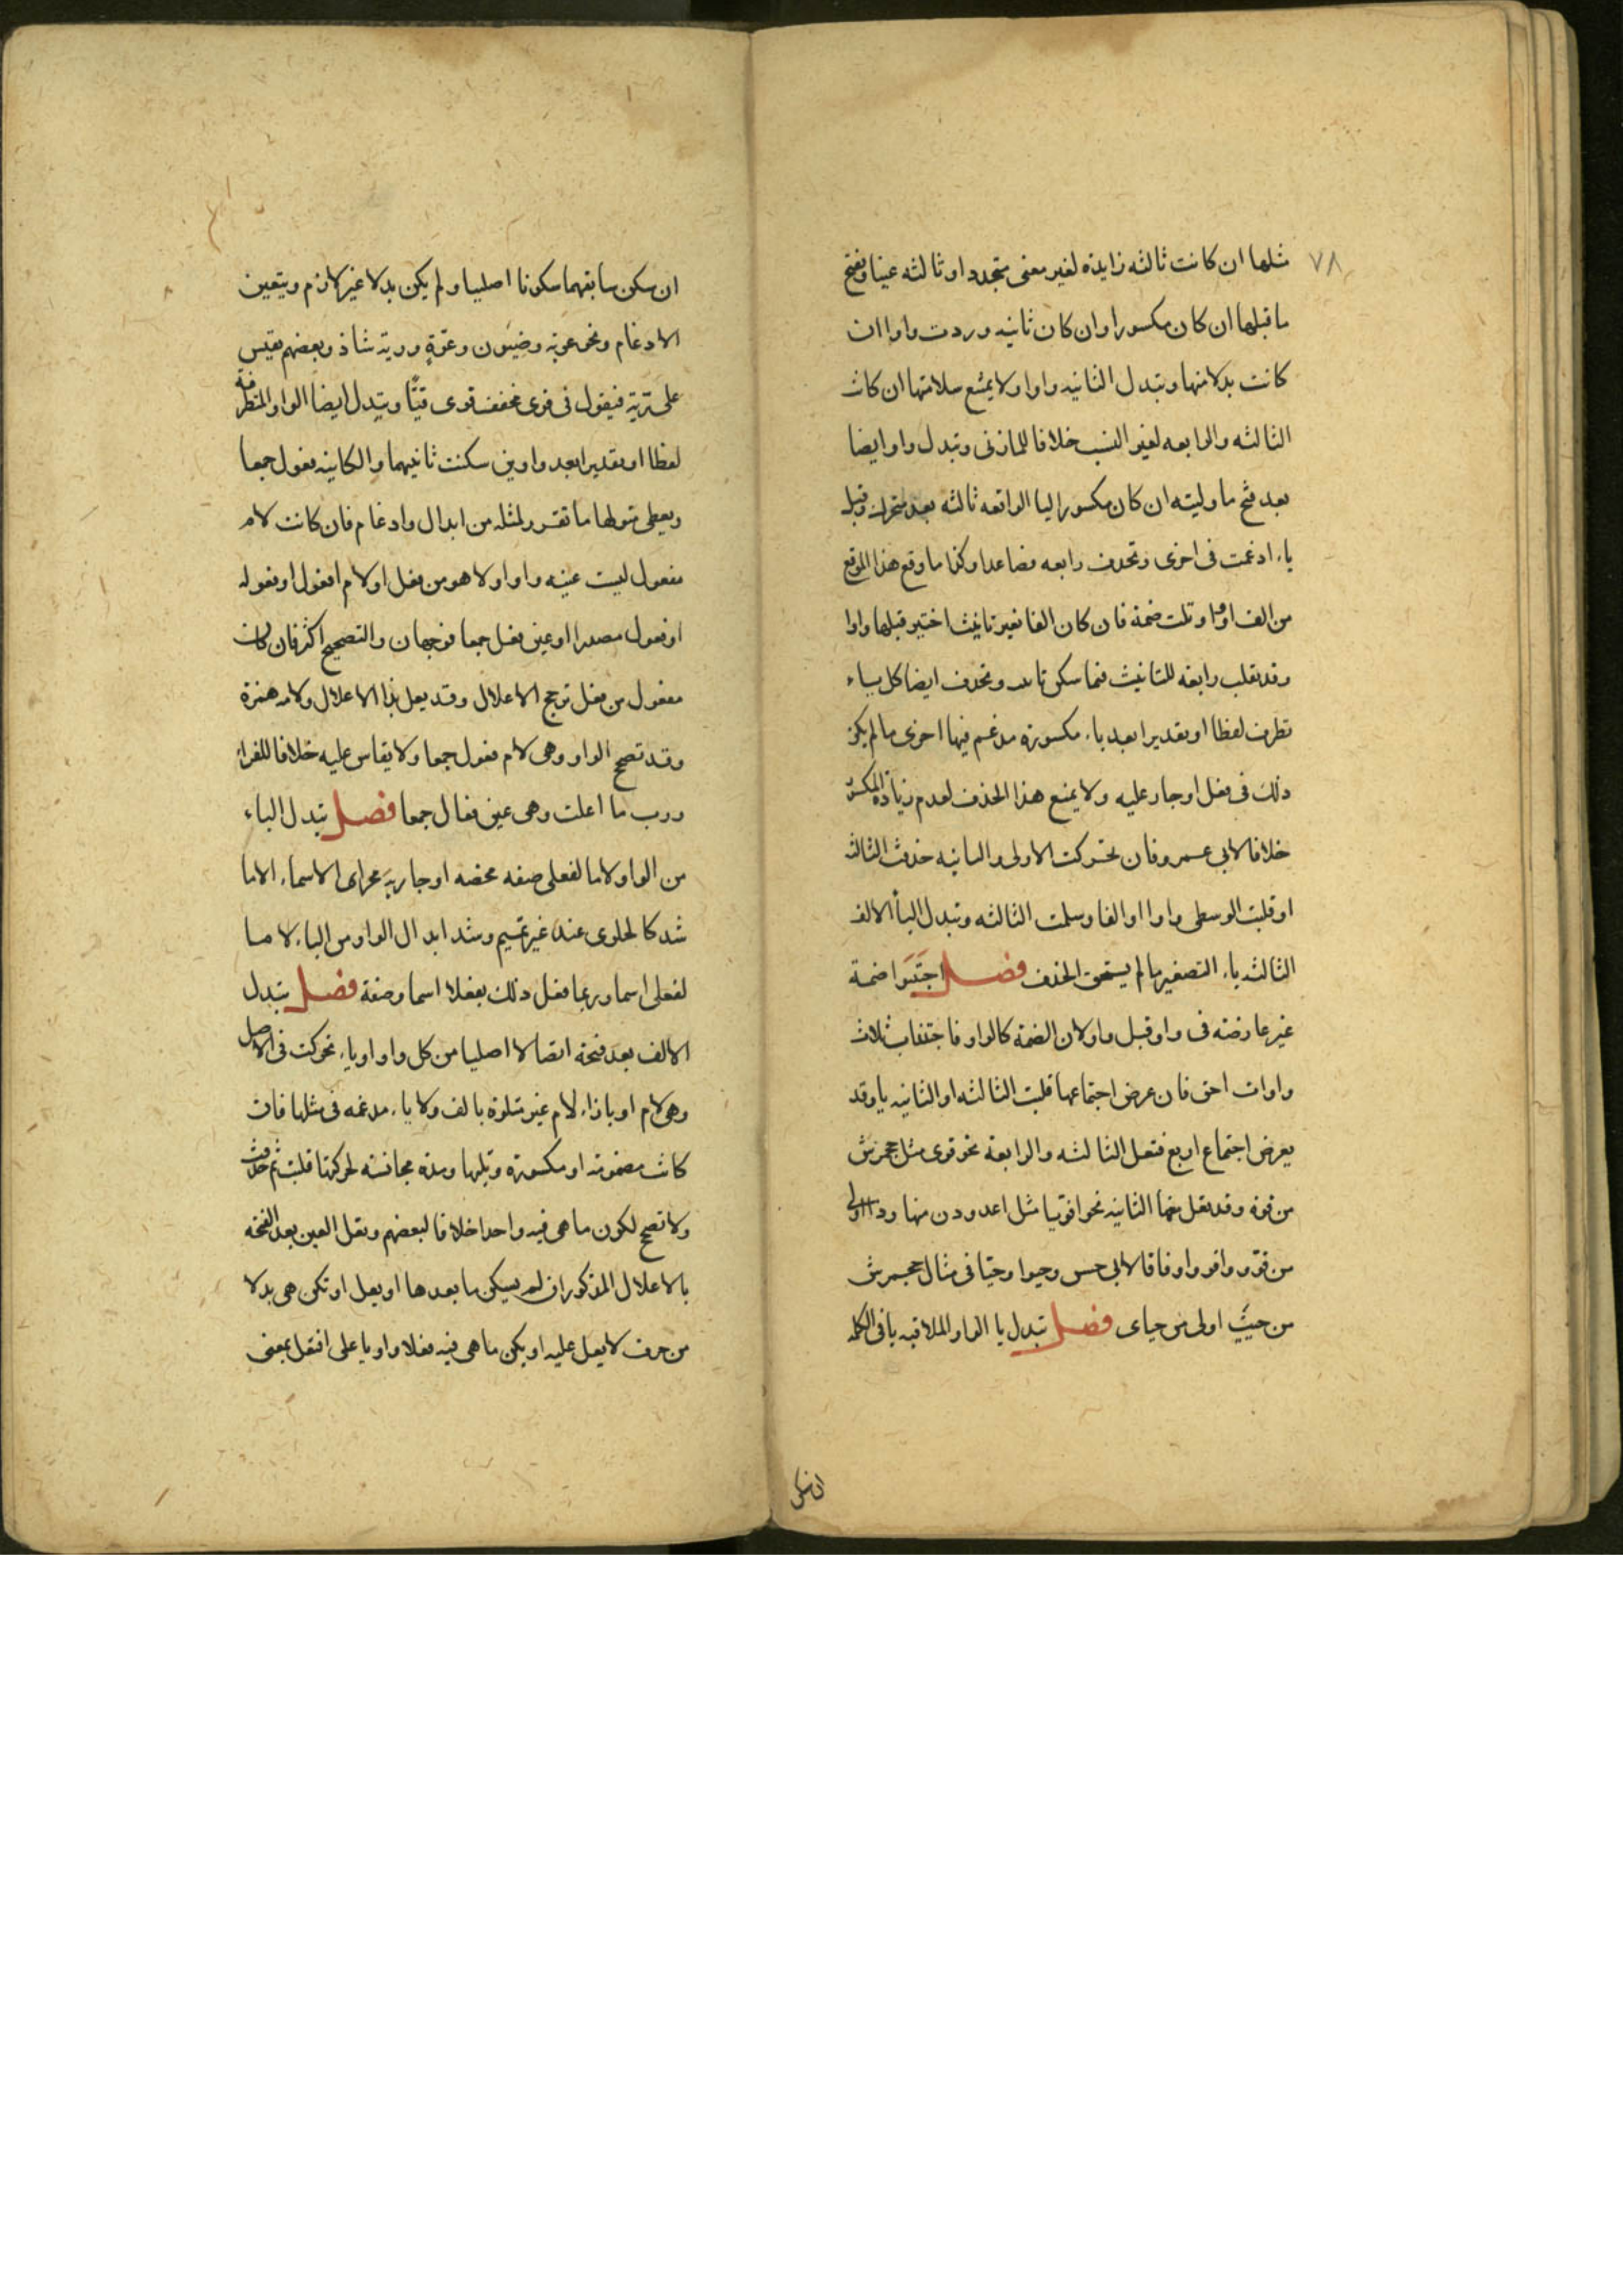 ٧٨
مثلها ان كانت ثالثه زايدة لغير معنى متجدد او ثالثه عينا ويفتح
ما قبلها ان كان مكسورا وان كان ثانيه وردت واوا ان
كانت بدلا منها وتبدل الثانيه واوا ولا يمتنع سلامتها ان كانت
الثالثه والرابعه لغير النسب خلافا للمازنى وتبدل واوا ايضا
بعد فتح ما وليته ان كان مكسورا اليا الواقعه ثالثه بعد متحرك وقبل
ياء ادغمت فى اخرى وتحذف رابعه فصاعدا وكذا ما وقع هذا الموقع
من الف او واو تلت ضمة فان كان الفا لغير تانيث اختير قبلها واوا
وقد تقلب رابعه للتانيث فيما سكن ثانيه وتحذف ايضا كل ياء
تطرفت لفظا او تقديرا بعد ياء مكسورة مدغم فيها اخرى ما لم يكن
ذلك فى فعل او جار عليه ولا يمنع هذا الحذف لعدم زيادة المكسورة
خلافا لابى عمرو فان تحركت الاولى والثانيه حذفت الثالثه
او قلبت الوسطى واوا او الفا وسلمت الثالثه وتبدل اليا الالف
الثالثه ياء التصغير ما لم يستحق الحذف فصل اجتنبوا ضمة
غير عارضه فى واو قبل واو لان الضمة كالواو فاجتناب ثلاث
واوات احق فان عرض اجتماعها قلبت الثالثه او الثانيه يا وقد
يعرض اجتماع اربع فتعل الثالثه والرابعة نحو قوى مثل جحمرش
من قوة وقد تعل معهما الثانيه نحو اقويا مثل اغدودن منها
من قوو واقووا وفاقا لابى حسن وحيوا وحيا فى مثال جحمرش
من حييت اولى من حياى فصل تبدل يا الواو الملاقيه يا فى الكلمه
ان سكن
ان سكن سابقهما سكونا اصليا ولم يكن بدلا غير لازم ويتعين
الادغام ونحو عوية وضيون وعوة ورية شاذ وبعضهم يقيس
على رية فيقول فى قوى مخفف قوى قيا وتبدل ايضا الواو المتطرفة
لفظا او تقديرا بعد واوين سكنت ثانيهما والكاينه بفعول جمعا
ويعطى متولها ما تقرر لمثله من ابدال وادغام فان كانت لام
مفعول ليست عينه واوا ولا هو من فعل او لام افعول او فعوله
او فعول مصدرا او عين فعل جمعا فوجهان والتصحيح اكثر فان كان
مفعول من فعل ترجح الاعلال وقد يعل بذا الاعلال ولامه همزة
وقد تصح الواو وهى لام فعول جمعا ولا يقاس عليه خلافا للفراء
ورب ما اعلت وهى عين فعال جمعا فصل تبدل الياء
من الواو لاما لفعلى صفه محضه او جاريه مجرى الاسماء الا ما
شد كالحلوى عند غير تميم وشد ابدال الواو من الياء لاما
لفعلى اسما وربما فعل ذلك بفعلا اسما وصفة فصل تبدل
الالف بعد فتحة اتصالا اصليا من كل واو او ياء تحركت فى الاصل
وهى لام او بازاء لام غير متلوة بالف ولا ياء مدغمه فى مثلها فان
كانت مضمومة او مكسورة وتلتها مدة مجانسه لحركتها قلبت ثم حذفت
ولا تصح لكون ما هى فيه واحدا خلافا لبعضهم وتعل العين بعد الفتحه
بالاعلال المذكور ان لم يسكن ما بعدها او يعل او تكن هى بدلا
من حرف لا يعل عليه او يكن ما هى فيه فعلا واويا على افتعل بمعنى